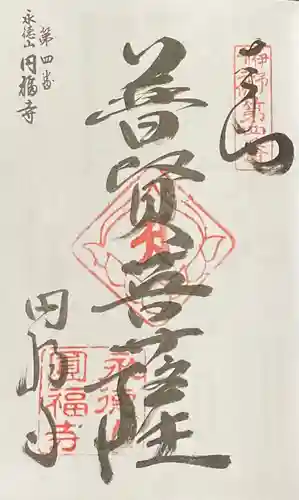 奉拝
普賢菩薩
円福寺
第四番
永徳山円福寺
永徳山
圓福寺